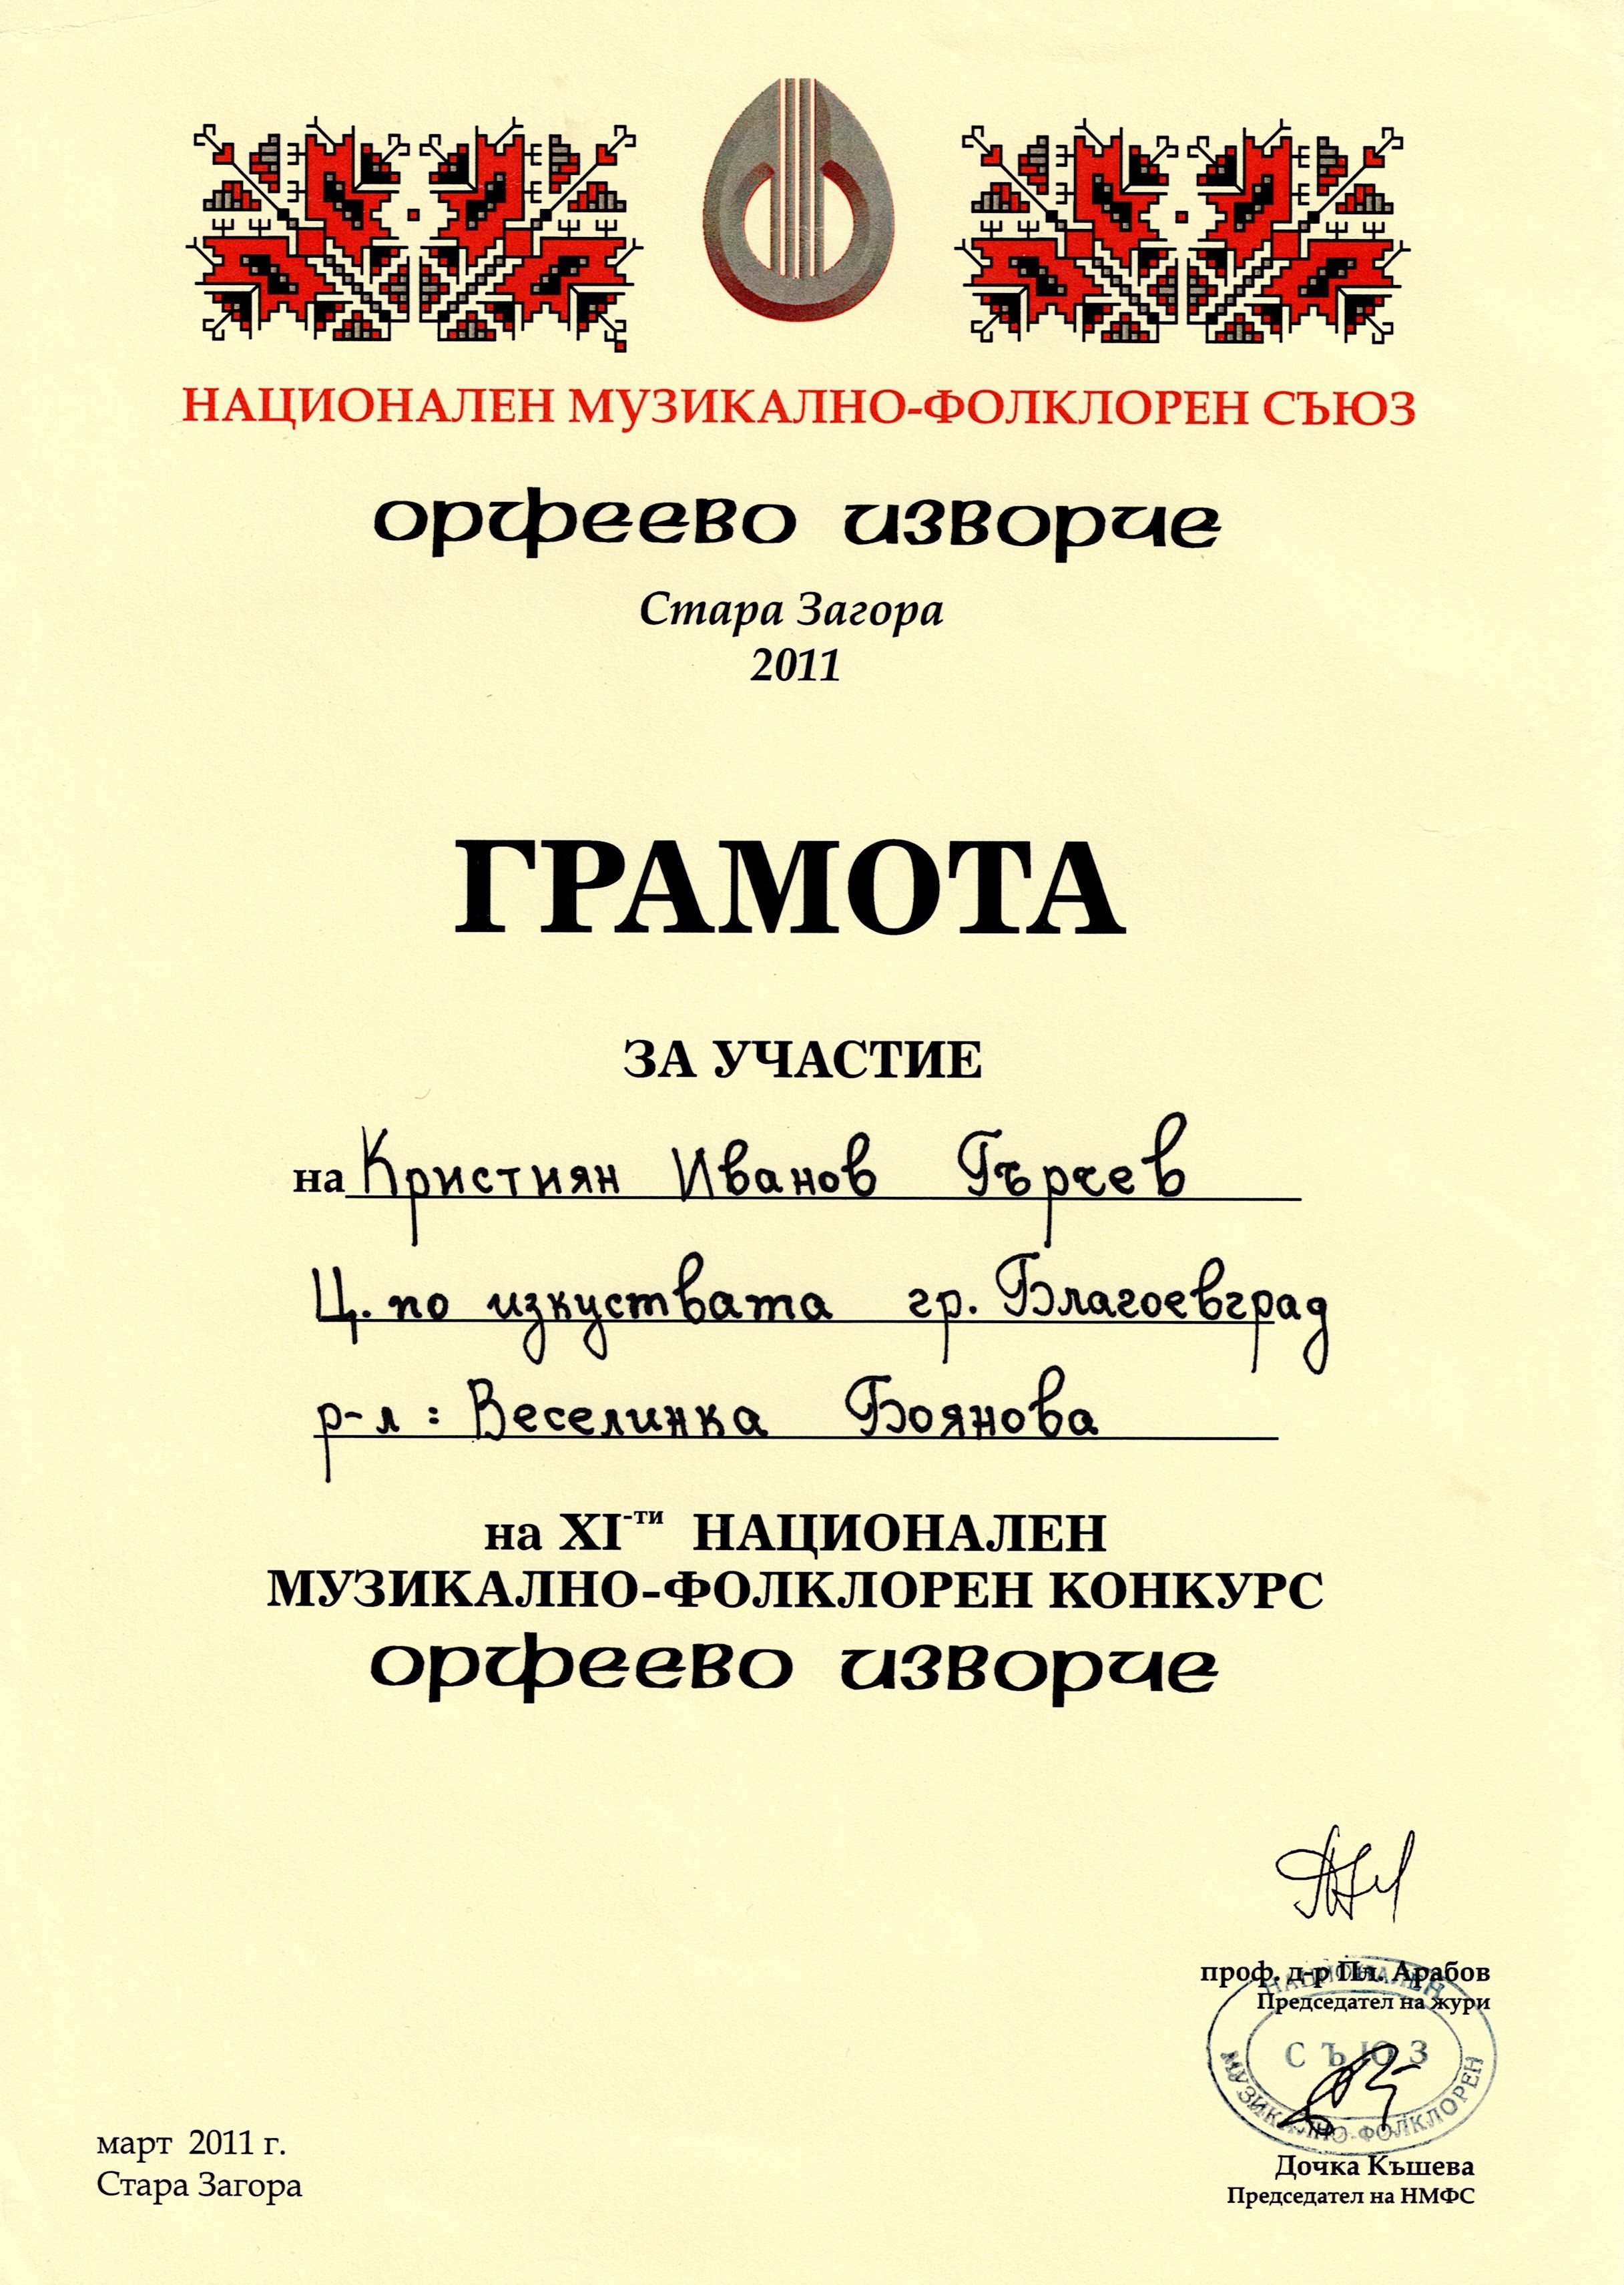 НАЦИОНАЛЕН МУЗИКАЛНО-ФОЛКЛОРЕН СЪЮЗ
орфеево изворче
Стара Загора
2011
ГРАМОТА
ЗА УЧАСТИЕ
на Кристиян Иванов Гърчев
Ц. по изкуствата гр. Благоевград
р-л: Веселинка Боянова
на XI-ти НАЦИОНАЛЕН
МУЗИКАЛНО-ФОЛКЛОРЕН КОНКУРС
орфеево изворче
проф. д-р Пл. Арабов
Председател на жури
НАЦИОНАЛЕН
СЪЮЗ
МУЗИКАЛНО-ФОЛКЛОРЕН
Дочка Къшева
Председател на НМФС
март 2011 г.
Стара Загора